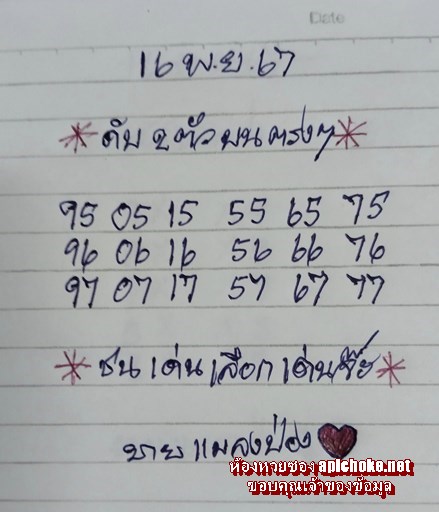 Date
16 พ.ย.67
ดับ 2 ตัว บน ตรงๆ
95 05 15 55 65 75
96 06 16 56 66 76
97 07 17 57 67 77
ชน เด่น เลือก เด่น
นาย แมลงป่อง
ห้องหวยซอง apichoke.net
ขอบคุณเจ้าของข้อมูล